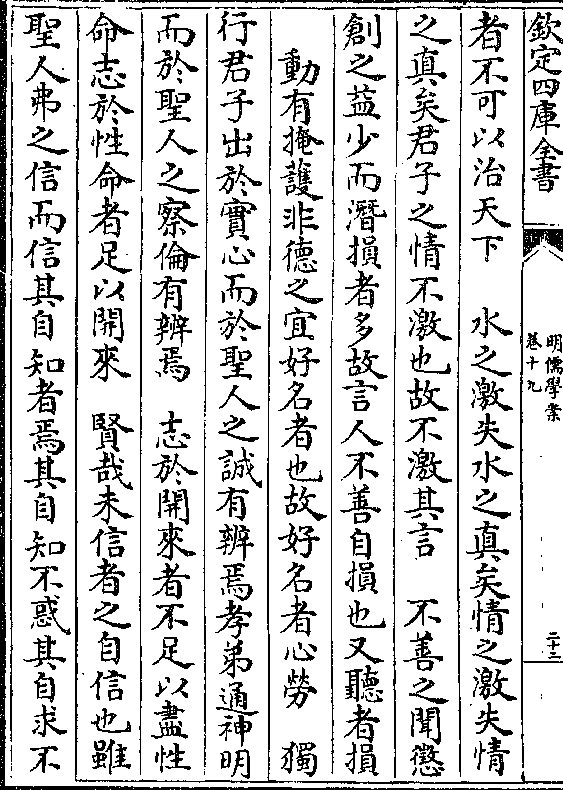 欽定四庫全書
明儒學案
卷十九
二十三
者不可以治天下　水之激失水之真矣情之激失情
之真矣君子之情不激也故不激其言　不善之聞懲
創之益少而潛損者多故言人不善自損也又聽者損
動有掩護非德之宜好名者也故好名者心勞　獨
行君子出於實心而於聖人之誠有辨焉孝弟通神明
而於聖人之察倫有辨焉　志於開來者不足以盡性
命志於性命者足以開來　賢哉未信者之自信也雖
聖人弗之信而信其自知者焉其自知不惑其自求不